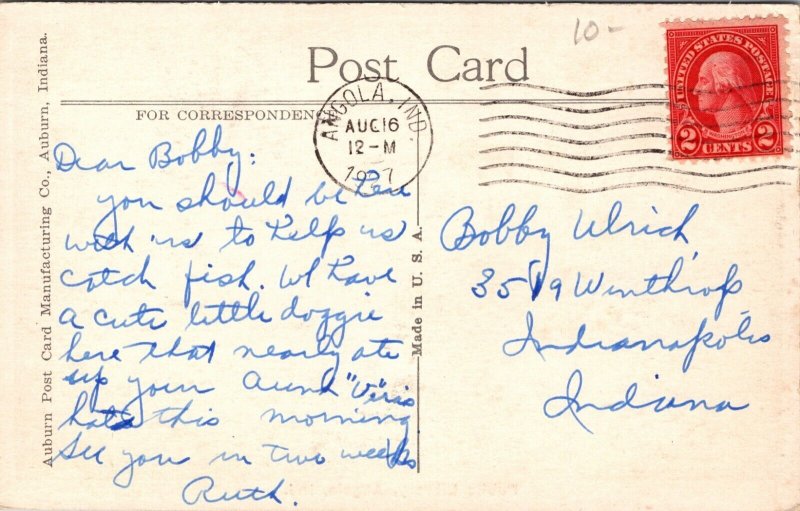 10-
Post Card
UNITED STATES POSTAGE
2 CENTS 2
FOR CORRESPONDENCE
ANGOLA, IND.
AUG 16
12-M
1927
Auburn Post Card Manufacturing Co., Auburn, Indiana.
Made in U. S. A.
Dear Bobby:
you should be here
with us to help us
catch fish. We have
a cute little doggie
here that nearly ate
up your Aunt "V"eris
hat this morning.
See you in two weeks
Ruth.
Bobby Ulrich,
3519 Winthrop
Indianapolis
Indiana